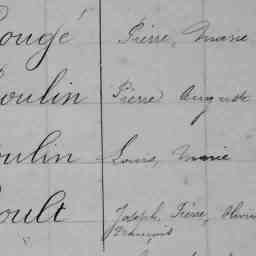 ougé Pierre, Marie
oulin Pierre Auguste
oulin Louis, Marie
oult Joseph, Pierre, Olivier
François